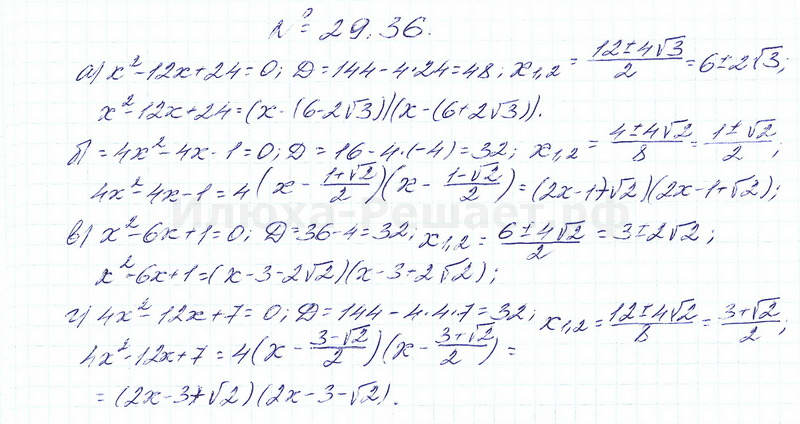 № 29.36.
а) x²-12x+24=0; D=144-4·24=48; x₁,₂ = (12±4√3)/2 = 6±2√3;
x²-12x+24=(x-(6-2√3))(x-(6+2√3)).
б) = 4x²-4x-1=0; D=16-4·(-4)=32; x₁,₂ = (4±4√2)/8 = (1±√2)/2;
4x²-4x-1=4(x - (1+√2)/2)(x - (1-√2)/2) = (2x-1-√2)(2x-1+√2);
Илюха-Решает.рф
в) x²-6x+1=0; D=36-4=32; x₁,₂ = (6±4√2)/2 = 3±2√2;
x²-6x+1=(x-3-2√2)(x-3+2√2);
г) 4x²-12x+7=0; D=144-4·4·7=32; x₁,₂ = (12±4√2)/8 = (3+√2)/2;
4x²-12x+7=4(x - (3-√2)/2)(x - (3+√2)/2) =
= (2x-3+√2)(2x-3-√2).